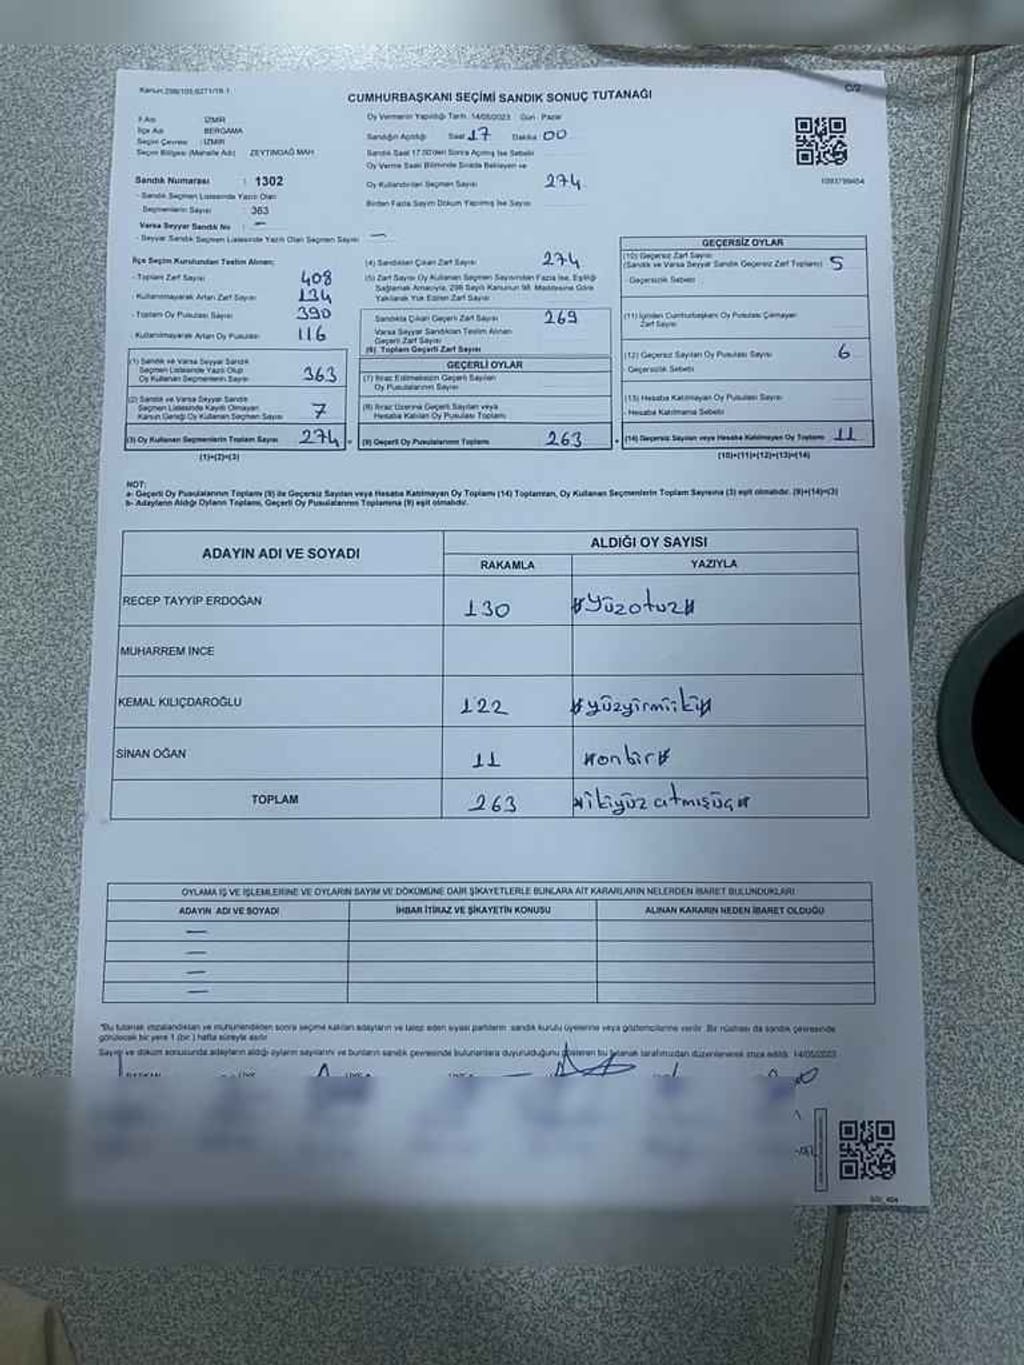 Kanun:298/105,6271/19-1
CUMHURBAŞKANI SEÇİMİ SANDIK SONUÇ TUTANAĞI
İl Adı İZMİR
İlçe Adı BERGAMA
Seçim Çevresi İZMİR
Seçim Bölgesi (Mahalle Adı) ZEYTİNDAĞ MAH
Sandık Numarası : 1302
- Sandık Seçmen Listesinde Yazılı Olan
Seçmenlerin Sayısı 363
Varsa Seyyar Sandık No : —
- Seyyar Sandık Seçmen Listesinde Yazılı Olan Seçmen Sayısı —
Oy Vermenin Yapıldığı Tarih: 14/05/2023 Gün: Pazar
Sandığın Açıldığı Saat 17 Dakika 00
Sandık Saat 17.00'den Sonra Açılmış İse Sebebi
Oy Verme Saati Bitiminde Sırada Bekleyen ve
Oy Kullandırılan Seçmen Sayısı 274
Birden Fazla Sayım Döküm Yapılmış İse Sayısı
İlçe Seçim Kurulundan Teslim Alınan;
- Toplam Zarf Sayısı 408
- Kullanılmayarak Artan Zarf Sayısı 134
- Toplam Oy Pusulası Sayısı 390
- Kullanılmayarak Artan Oy Pusulası 116
(1) Sandık ve Varsa Seyyar Sandık
Seçmen Listesinde Yazılı Olup
Oy Kullanan Seçmenlerin Sayısı 363
(2) Sandık ve Varsa Seyyar Sandık
Seçmen Listesinde Kayıtlı Olmayan
Kanun Gereği Oy Kullanan Seçmen Sayısı 7
(3) Oy Kullanan Seçmenlerin Toplam Sayısı 274
(1)+(2)=(3)
(4) Sandıktan Çıkan Zarf Sayısı 274
(5) Zarf Sayısı Oy Kullanan Seçmen Sayısından Fazla İse, Eşitliği
Sağlamak Amacıyla, 298 Sayılı Kanunun 98. Maddesine Göre
Yakılarak Yok Edilen Zarf Sayısı
Sandıkta Çıkan Geçerli Zarf Sayısı 269
Varsa Seyyar Sandıktan Teslim Alınan
Geçerli Zarf Sayısı
(6) Toplam Geçerli Zarf Sayısı
GEÇERLİ OYLAR
(7) İtiraz Edilmeksizin Geçerli Sayılan
Oy Pusulalarının Sayısı
(8) İtiraz Üzerine Geçerli Sayılan veya
Hesaba Katılan Oy Pusulası Toplamı
(9) Geçerli Oy Pusulalarının Toplamı 263
GEÇERSİZ OYLAR
(10) Geçersiz Zarf Sayısı
(Sandık ve Varsa Seyyar Sandık Geçersiz Zarf Toplamı) 5
- Geçersizlik Sebebi
(11) İçinden Cumhurbaşkanı Oy Pusulası Çıkmayan
Zarf Sayısı
(12) Geçersiz Sayılan Oy Pusulası Sayısı 6
- Geçersizlik Sebebi
(13) Hesaba Katılmayan Oy Pusulası Sayısı
- Hesaba Katılmama Sebebi
(14) Geçersiz Sayılan veya Hesaba Katılmayan Oy Toplamı 11
(10)+(11)+(12)+(13)=(14)
NOT:
a- Geçerli Oy Pusulalarının Toplamı (9) ile Geçersiz Sayılan veya Hesaba Katılmayan Oy Toplamı (14) Toplamları, Oy Kullanan Seçmenlerin Toplam Sayısına (3) eşit olmalıdır. (9)+(14)=(3)
b- Adayların Aldığı Oyların Toplamı, Geçerli Oy Pusulalarının Toplamına (9) eşit olmalıdır.
ADAYIN ADI VE SOYADI ALDIĞI OY SAYISI
RAKAMLA YAZIYLA
RECEP TAYYİP ERDOĞAN 130 #yüzotuz#
MUHARREM İNCE
KEMAL KILIÇDAROĞLU 122 #yüzyirmiiki#
SİNAN OĞAN 11 #onbir#
TOPLAM 263 #ikiyüz atmışüç#
OYLAMA İŞ VE İŞLEMLERİNE VE OYLARIN SAYIM VE DÖKÜMÜNE DAİR ŞİKAYETLERLE BUNLARA AİT KARARLARIN NELERDEN İBARET BULUNDUKLARI
ADAYIN ADI VE SOYADI İHBAR İTİRAZ VE ŞİKAYETİN KONUSU ALINAN KARARIN NEDEN İBARET OLDUĞU
—
—
—
—
"Bu tutanak imzalandıktan ve mühürlendikten sonra seçime katılan adayların ve talep eden siyasi partilerin sandık kurulu üyelerine veya gözlemcilerine verilir. Bir nüshası da sandık çevresinde
görülecek bir yere 1 (bir ) hafta süreyle asılır
Sayım ve döküm sonucunda adayların aldığı oyların sayılarını ve bunların sandık çevresinde bulunanlara duyurulduğunu gösteren bu tutanak tarafımızdan düzenlenerek imza edildi. 14/05/2023